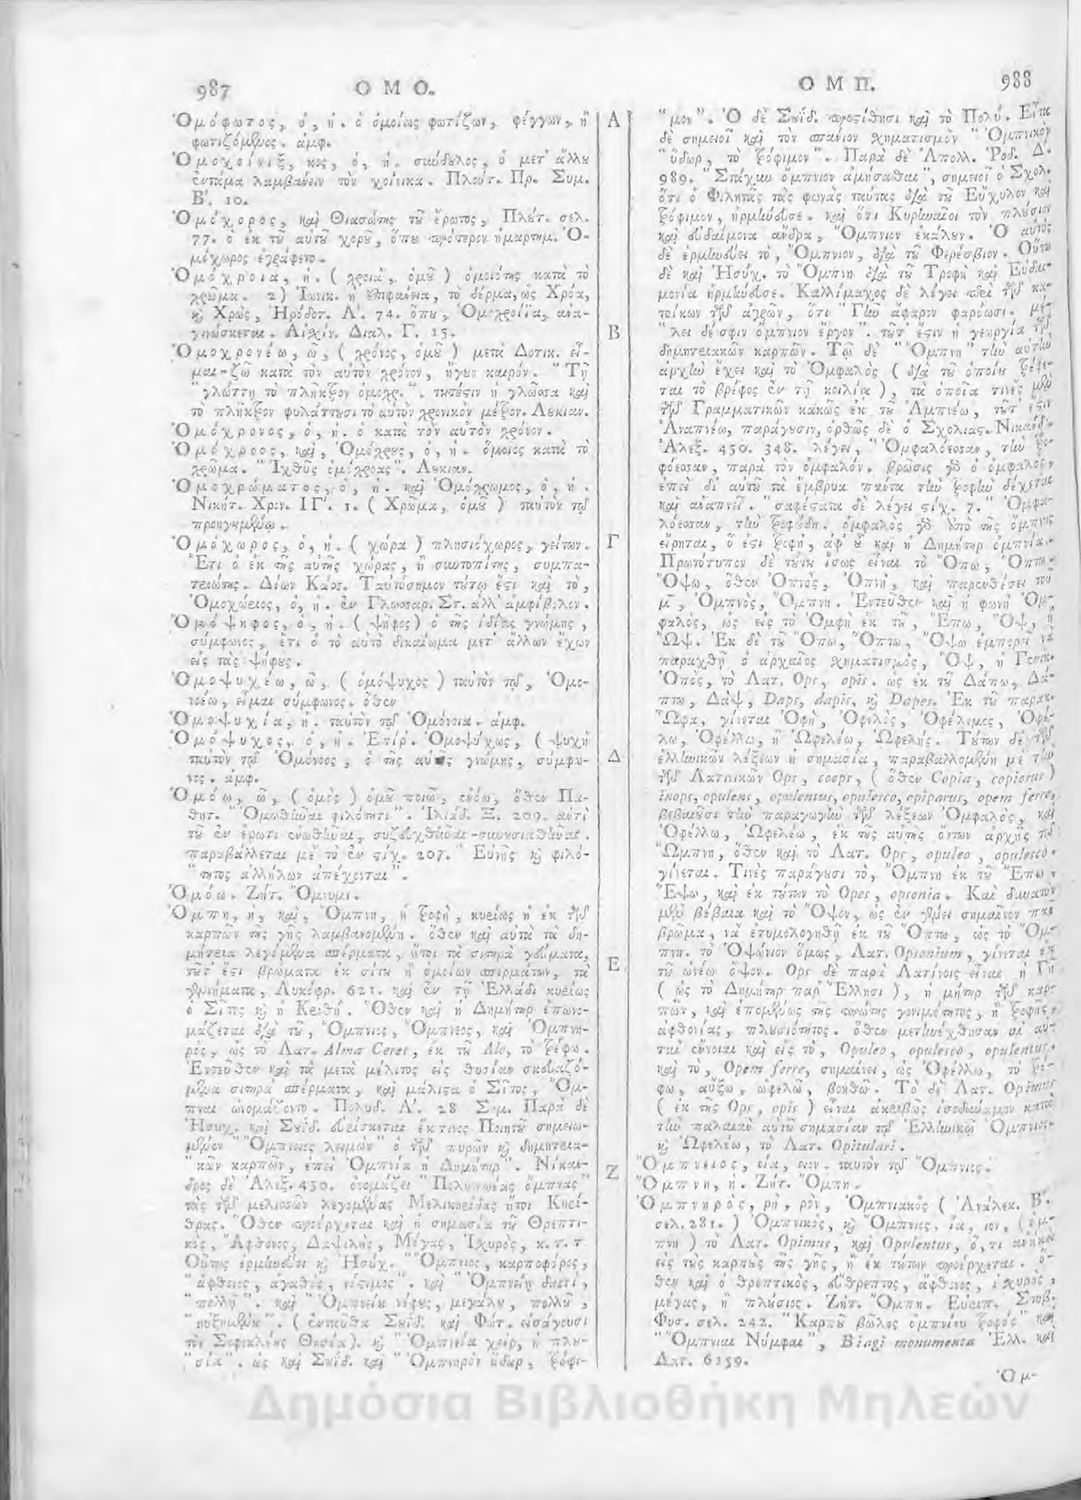 987 Ο Μ Ο.
Ὁμόφωτος, ὁ, ἡ. ὁ ὁμοίως φωτίζων, φέγγων, ἢ
φωτιζόμενος. ἀμφ.
Ὁμοχοῖνιξ, κος, ὁ, ἡ. σύνδουλος, ὁ μετ' ἄλλου
λαμβάνων τὸν χοίνικα. Πλούτ. Πρ. Συμ.
Β'. 10.
Ὁμόχορος, καὶ Θιασώτης τοῦ ἔρωτος, Πλούτ. σελ.
77. ὁ ἐκ τοῦ αὐτοῦ χοροῦ, ὅπου πρότερον ἡμαρτημ. Ὁ-
μόχωρος ἐγράφετο.
Ὁμόχροια, ἡ. ( χροιὰ, ὁμοῦ ) ὁμοιότης κατὰ τὸ
χρῶμα. 2) Ἰωνικ. ἡ ἐπιφάνεια, τὸ δέρμα, ὡς Χρόα,
καὶ Χρὼς, Ἡρόδοτ. Α. 74. ὅπου, Ὁμοχροΐα, ἀνα-
γινώσκεται. Αἰσχίν. Διαλ. Γ. 15.
Ὁμοχρονέω, ῶ, ( χρόνος, ὁμοῦ ) μετὰ Δοτικ. εἶ-
μαι-ζῶ κατὰ τὸν αὐτὸν χρόνον, ἤγουν καιρόν. " Τῇ
" γλώττῃ τὸ πλῆκτρον ὁμοχρ. " τουτέστιν ἡ γλῶσσα καὶ
τὸ πλῆκτρον φυλάττουσι τὸ αὐτὸν χρονικὸν μέτρον. Λουκιαν.
Ὁμόχρονος, ὁ, ἡ. ὁ κατὰ τὸν αὐτὸν χρόνον.
Ὁμόχροος, καὶ, Ὁμόχρους, ὁ, ἡ. ὅμοιος κατὰ τὸ
χρῶμα. " Ἰχθῦς ὁμόχροας". Λουκιαν.
Ὁμοχρώματος, ὁ, ἡ. καὶ Ὁμόχρωμος, ὁ, ἡ.
Νικητ. Χρον. ΙΓ'. 1. ( Χρῶμα, ὁμοῦ ) ταὐτὸν τῷ
προηγουμένῳ.
Ὁμόχωρος, ὁ, ἡ. ( χώρα ) πλησιόχωρος, γείτων.
Ἔτι ὁ ἐκ τῆς αὐτῆς χώρας, ἢ συντοπίτης, συμπα-
τριώτης. Δίων Κασ. Ταὐτόσημον τούτῳ ἔστι καὶ τὸ,
Ὁμοχώριος, ὁ, ἡ. ἐν Γλωσσαρ. Στ. ἀλλ' ἀμφίβολον.
Ὁμόψηφος, ὁ, ἡ. ( ψῆφος) ὁ τῆς ἰδίας γνώμης,
σύμφωνος, ἔτι ὁ τὸ αὐτὸ δικαίωμα μετ' ἄλλων ἔχων
εἰς τὰς ψήφους.
Ὁμοψυχέω, ῶ, ( ὁμόψυχος ) ταὐτὸν τῷ, Ὁμο-
νοέω, εἶμαι σύμφωνος. ὅθεν
Ὁμοψυχία, ἡ. ταὐτὸν τῷ Ὁμόνοια. ἀμφ.
Ὁμόψυχος, ὁ, ἡ. Ἐπίρ. Ὁμοψύχως, ( ψυχὴ
ταὐτὸν τῷ Ὁμόνοος, ὁ τῆς αὐτῆς γνώμης, σύμφω-
νος. ἀμφ.
Ὁμόω, ῶ, ( ὁμὸς ) ὁμοῦ ποιῶ, ἑνόω, ὅθεν Πα-
θητ. " Ὁμωθῆναι φιλότητι". Ἰλιάδ. Ξ. 209. ἀντὶ
τοῦ ἐν ἔρωτι ἑνωθῆναι, συζευχθῆναι-συνουσιασθῆναι.
παραβάλλεται μὲ τὸ ἐν στίχ. 207. " Εὐνῆς καὶ φιλό-
" τητος ἀλλήλων ἀπέχονται".
Ὁμόω. Ζήτ. Ὄμνυμι.
Ὄμπη, η, καὶ, Ὄμπνη, ἡ τροφὴ, κυρίως ἡ ἐκ τῶν
καρπῶν τῆς γῆς λαμβανομένη. ὅθεν καὶ αὐτὰ τὰ δη-
μήτρεια λεγόμενα σπέρματα, ἤτοι τὰ σιτηρὰ γεύματα,
τοῦτ' ἔστι βρώματα ἐκ σίτου ἢ ὁμοίων σπερμάτων, τὰ
γεννήματα, Λυκόφρ. 621. καὶ ἐν τῇ Ἑλλάδι κυρίως
ὁ Σῖτος ἢ Κριθή. Ὅθεν καὶ ἡ Δημήτηρ ἐπωνο-
μάζεται διὰ τοῦ, Ὄμπνιος, Ὄμπνεος, καὶ Ὀμπνη-
ρὸς, ὡς τὸ Λατ. Alma Ceres, ἐκ τοῦ Alo, τὸ τρέφω.
Ἐντεῦθεν καὶ τὰ μετὰ μέλιτος εἰς θυσίαν σκευαζό-
μενα σιτηρὰ σπέρματα, καὶ μάλιστα ὁ Σῖτος, Ὄμ-
πναι ὠνομάζοντο. Πολυδ. Α'. 28 Σημ. Παρὰ δὲ
Ἡσυχ. καὶ Σουΐδ. εὑρίσκεται ἔκ τινος Ποιητοῦ σημειω-
μένον " Ὄμπνιος λειμὼν" ὁ τῶν πυρῶν καὶ δημητρια-
" κῶν καρπῶν, ἐπεὶ Ὀμπνία ἡ Δημήτηρ". Νίκαν-
δρος δὲ Ἀλεξ. 450. ὀνομάζει " Πολυωπέας ὄμπνας"
τὰς τῶν μελισσῶν λεγομένας Μελικηρίδας ἤτοι Κηρή-
θρας. Ὅθεν προέρχεται καὶ ἡ σημασία τοῦ Θρεπτι-
κὸς, Ἄφθονος, Δαψιλὴς, Μέγας, Ἰσχυρὸς, κ. τ. τ
Οὕτως ἑρμηνεύει καὶ Ἡσυχ. " Ὄμπνιος, καρποφόρος,
" ἄφθονος, ἀγαθὸς, νόστιμος". καὶ " Ὀμπνείῃ δαιτὶ,
" πολλῇ". καὶ " Ὀμπνείου νέφους, μεγάλου, πολλοῦ,
" ηὐξημένου". ( ἐνταῦθα Σουΐδ. καὶ Φωτ. εἰσάγουσι
τὸν Σοφοκλέους Θησέα). καὶ " Ὀμπνεία χεὶρ, ἡ πλου-
" σία". ὡς καὶ Σουΐδ. καὶ " Ὀμπνηρὸν ὕδωρ, τρόφι-
Α
Β
Γ
Δ
Ε
Ζ
Ο Μ Π. 988
" μον". Ὁ δὲ Σουΐδ. προστίθησι καὶ τὸ Πολύ. Ἔτι
δὲ σημειοῖ καὶ τὸν σπάνιον σχηματισμὸν " Ὀμπνικὸν
" ὕδωρ, τὸ τρόφιμον". Παρὰ δὲ Ἀπολλ. Ῥοδ. Δ.
989. " Στάχυν ὄμπνιον ἀμήσασθαι", σημειοῖ ὁ Σχολ.
ὅτι ὁ Φιλητᾶς τὰς φωνὰς ταύτας διὰ τοῦ Εὔχυλον καὶ
τρόφιμον, ἡρμήνευσε. καὶ ὅτι Κυρηναῖοι τὸν πλούσιον
καὶ εὐδαίμονα ἄνδρα, Ὄμπνιον ἐκάλουν. Ὁ αὐτὸς
δὲ ἑρμηνεύει τὸ, Ὄμπνιον, διὰ τοῦ Φερέσβιον. Οὕτω
δὲ καὶ Ἡσύχ. τὸ Ὄμπνη διὰ τοῦ Τροφὴ καὶ Εὐδαι-
μονία ἡρμήνευσε. Καλλίμαχος δὲ λέγει περὶ τῶν κα-
τοίκων τῶν ἀγρῶν, ὅτι " Γῆν ἄφαριν φαρόωσι. μέ-
" λει δέ σφιν ὄμπνιον ἔργον". τοῦτ' ἔστιν ἡ γεωργία τῶν
δημητριακῶν καρπῶν. Τῷ δὲ " Ὄμπνη" τὴν αὐτὴν
ἀρχὴν ἔχει καὶ τὸ Ὀμφαλὸς ( διὰ τοῦ ὁποίου τρέφε-
ται τὸ βρέφος ἐν τῇ κοιλίᾳ ), τὰ ὁποῖα τινὲς μὲν
τῶν Γραμματικῶν κακῶς ἐκ τοῦ Ἀμπνέω, τοῦτ' ἔστιν
Ἀναπνέω, παράγουσιν, ὀρθῶς δὲ ὁ Σχολιας. Νικανδ.
Ἀλεξ. 450. 348. λέγει, " Ὀμφαλόεσσαν, τὴν τρο-
φόεσσαν, παρὰ τὸν ὀμφαλόν. βρῶσις γὰρ ὁ ὀμφαλὸς
ἐπεὶ δι' αὐτοῦ τὰ ἔμβρυα πάντα τὴν τροφὴν δέχεται
καὶ ἀναπνεῖ. " σαφέστατα δὲ λέγει στίχ. 7. " Ὀμφα-
λόεσσαν, τὴν τροφώδη. ὀμφαλὸς γὰρ ἀπὸ τῆς ὄμπνης
εἴρηται, ὅ ἐστι τροφὴ, ἀφ' οὗ καὶ ἡ Δημήτηρ ὀμπνία.
Πρωτότυπον δὲ τούτων ἴσως εἶναι τὸ Ὄπω, Ὄπτω,
Ὄψω, ὅθεν Ὀπνὸς, Ὀπνὴ, καὶ παρενθέσει τοῦ
μ, Ὀμπνὸς, Ὄμπνη. Ἐντεῦθεν καὶ ἡ φωνὴ Ὀμ-
φαλὸς, ὡς εἰς τὸ Ὀμφὴ ἐκ τοῦ, Ἔπω, Ὂψ, ἢ
Ὢψ. Ἐκ δὲ τοῦ Ὄπω, Ὄπτω, Ὄψω ἐμπορεῖ νὰ
παραχθῇ ὁ ἀρχαῖος σχηματισμὸς, Ὂψ, ἡ Γενικ.
Ὀπὸς, τὸ Λατ. Ops, opis. ὡς ἐκ τοῦ Δάπω, Δά-
πτω, Δὰψ, Daps, dapis, καὶ Dapes. Ἐκ τοῦ παρακ.
Ὦφα, γίνεται Ὀφὴ, Ὀφιλὸς, Ὀφέλιμος, Ὀφέ-
λω, Ὀφέλλω, ἢ Ὠφελέω, Ὠφελής. Τούτων δὲ τῶν
ἑλληνικῶν λέξεων ἡ σημασία, παραβαλλομένη μὲ τὴν
τῶν Λατινικῶν Ops, coops, ( ὅθεν Copia, copiosus )
inops, opulens, opulentus, opulesco, opiparus, opem ferre,
βεβαιοῦσι τὴν παραγωγὴν τῶν λέξεων Ὀμφαλὸς, καὶ
Ὀφέλλω, Ὠφελέω, ἐκ τῆς αὐτῆς ὄντων ἀρχῆς τῷ
Ὄμπνη, ὅθεν καὶ τὸ Λατ. Ops, opuleo, opulesco.
γίνεται. Τινὲς παράγουσι τὸ, Ὄμπνη ἐκ τοῦ Ἔπω,
Ἔψω, καὶ ἐκ τούτων τὸ Opes, opsonia. Καὶ δυνατὸν
μὲν βέβαια καὶ τὸ Ὄψον, ὡς ἐν γένει σημαῖνον πᾶν
βρῶμα, νὰ ἐτυμολογηθῇ ἐκ τοῦ Ὄπτω, ὡς τὸ Ὄμ-
πνη. τὸ Ὀψώνιον ὅμως, Λατ. Opsonium, γίνεται ἐκ
τοῦ ὠνέω ὄψον. Ops δὲ παρὰ Λατίνοις εἶναι ἡ Γῆ
( ὡς τὸ Δημήτηρ παρ' Ἕλλησι ), ἡ μήτηρ τῶν καρ-
πῶν, καὶ ἑπομένως τῆς πρώτης γονιμότητος, ἢ τροφῆς,
ἀφθονίας, πλουσιότητος. ὅθεν μετηνέχθησαν αἱ αὐ-
ταὶ ἔννοιαι καὶ εἰς τὸ, Opuleo, opulesco, opulentus.
καὶ τὸ, Opem ferre, σημαίνει, ὡς Ὀφέλλω, τὸ τρέ-
φω, αὔξω, ὠφελῶ, βοηθῶ. Τὸ δὲ Λατ. Opimus
( ἐκ τῆς Ops, opis ) εἶναι ἀκριβῶς ἰσοδύναμον κατὰ
τὴν παλαιὰν αὐτῶν σημασίαν τῷ Ἑλληνικῷ Ὄμπνιος.
καὶ Ὠφελέω, τὸ Λατ. Opitulari.
Ὄμπνειος, εία, ειον. ταὐτὸν τῷ Ὄμπνιος.
Ὄμπνη, ἡ. Ζήτ. Ὄμπη.
Ὀμπνηρὸς, ρὴ, ρὸν, Ὀμπνιακὸς ( Ἀνάλεκ. Β'.
σελ. 281. ) Ὀμπνικὸς, καὶ Ὄμπνιος, ία, ιον, ( ὄμ-
πνη ) τὸ Λατ. Opimus, καὶ Opulentus, ὅ, τι ἀνήκει
εἰς τοὺς καρποὺς τῆς γῆς, ἢ ἐκ τούτων προέρχεται. ὅ-
θεν καὶ ὁ θρεπτικὸς, εὔθρεπτος, ἄφθονος, ἰσχυρὸς,
μέγας, ἢ πλούσιος. Ζήτ. Ὄμπη. Εὐριπ. Στοβ.
Φυσ. σελ. 242. " Καρποῦ βῶλος ὀμπνίου τροφὸς" καὶ
" Ὄμπνιαι Νύμφαι", Biagi monumenta Ἑλλ. καὶ
Λατ. 6159.
Ὀμ-
Δημόσια Βιβλιοθήκη Μηλεών